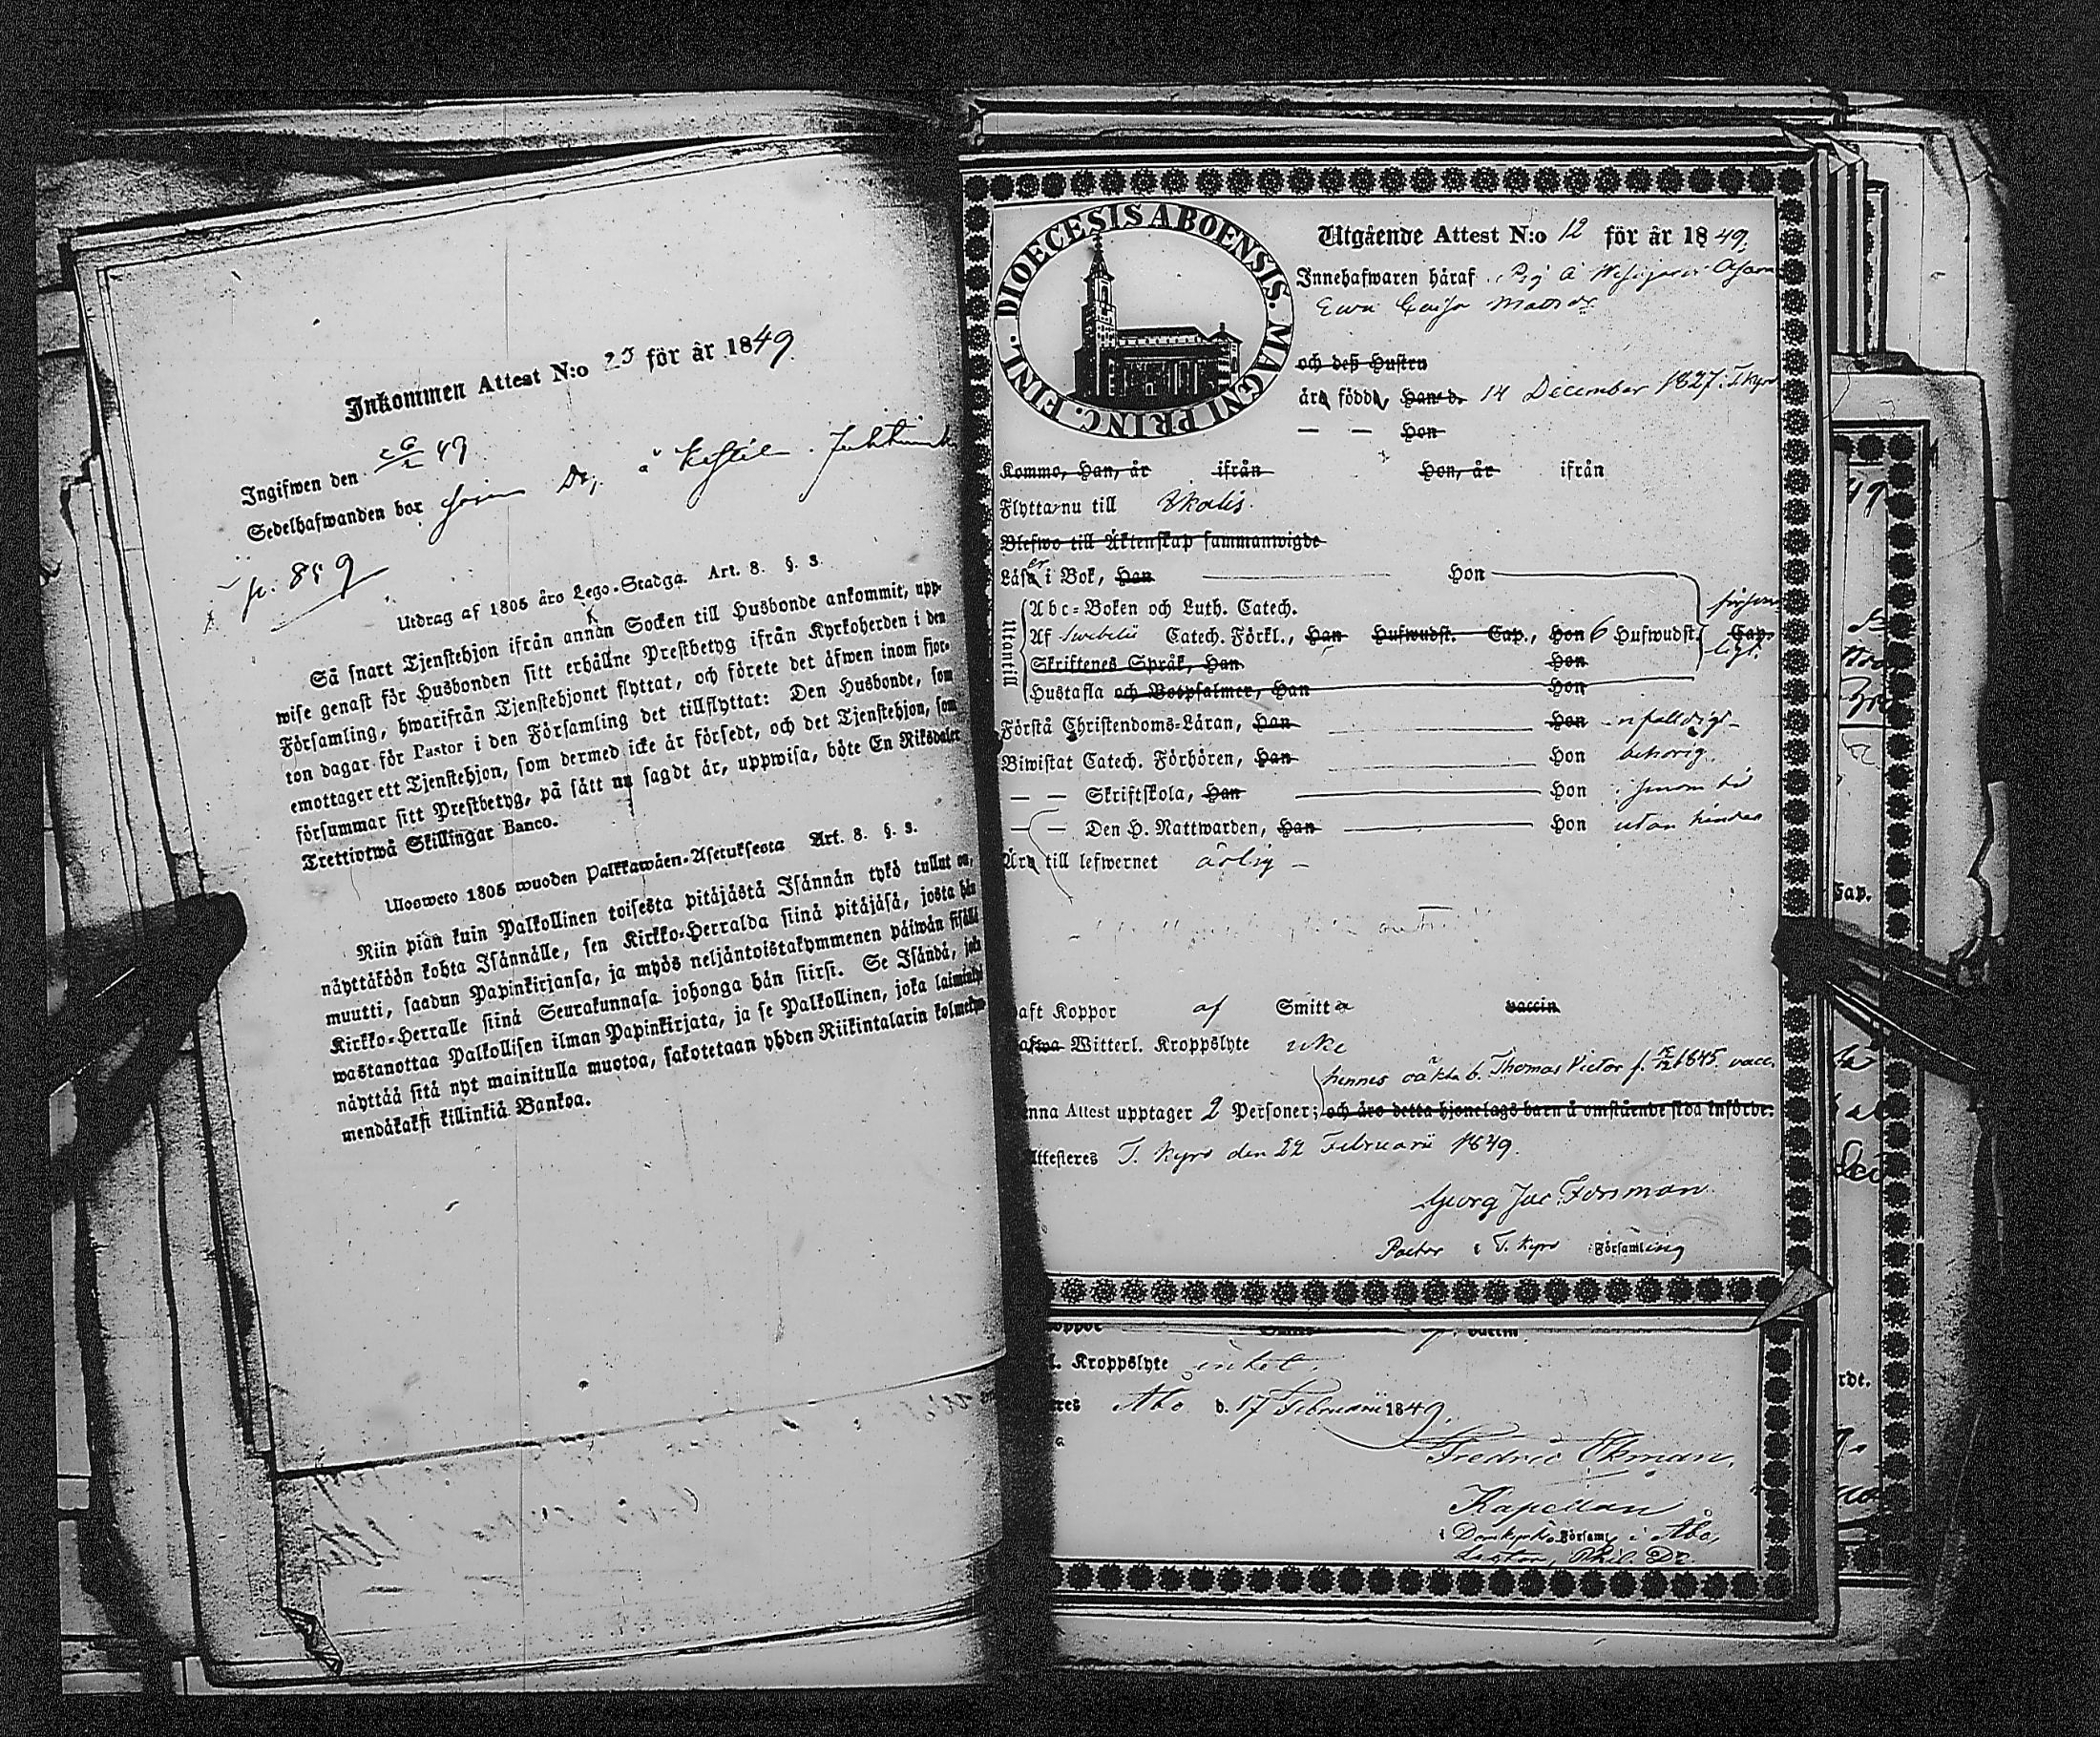 Inkommen Attest N:o 25 för år 1849
Ingifwen den 26/2 49
Sedelhafwanden bor som Dr. å
p. 859
Utdrag af 1805 års Lego-Stadga. Art. 8. §. 3.
Så snart Tjenstehjon ifrån annan Socken till Husbonde ankommit, upp-
wise genast för Husbonden sitt erhållne Prestbetyg ifrån Kyrkoherden i den
Församling, hwarifrån Tjenstehjonet flyttat, och förete det äfwen inom fjor-
ton dagar för Pastor i den Församling det tillflyttat: Den Husbonde, som
emottager ett Tjenstehjon, som dermed icke är försedt, och det Tjenstehjon, som
försummar sitt Prestbetyg, på sätt nu sagdt är, uppwisa, böte En Riksdaler
Trettiotwå Skillingar Banco.
Ulosweto 1805 wuoden Palkkawäen-Asetuksesta Art. 8. §. 3.
Niin pian kuin Palkollinen toisesta pitäjästä Isännän tykö tullut on,
näyttäköön kohta Isännälle, sen Kirkko-Herralda siinä pitäjäsä, josta hän
muutti, saadun Papinkirjansa, ja myös neljäntoistakymmenen päiwän sisällä
Kirkko-Herralle siinä Seurakunnasa johonga hän siirsi. Se Isändä, joka
wastanottaa Palkollisen ilman Papinkirjata, ja se Palkollinen, joka laiminlyö
näyttää sitä nyt mainitulla muotoa, sakotetaan yhden Riikintalarin kolmekym-
mendäkaksi killinkiä Bankoa.
DIOECESIS ABOENSIS. MAGNI PRINC. FINL.
Utgående Attest N:o 12 för år 1849.
Innehafwaren häraf, Pig. å
Ewa Caisa Matts dr
och deß Hustru
äro född Han d. 14 December 1827. T. Kyro
— — Hon
Kommo, Han, år ifrån Hon, år ifrån
Flytta nu till Ikalis.
Blefwo till Äktenskap sammanwigde
Läser i Bok, Han Hon
Utantill
Abc-Boken och Luth. Catech.
Af Swebelii Catech. Förkl., Han Hufwudst. Cap., Hon 6 Hufwudst. Cap.
Skriftenes Språk, Han Hon
Hustafla och Botpsalmer, Han Hon
Förstå Christendoms-Läran, Han Hon
Biwistat Catech. Förhören, Han Hon behörig.
— — Skriftskola, Han Hon
— — Den H. Nattwarden, Han Hon utan hinder
Äro till lefwernet ärlig –
haft Koppor af Smitta vaccin
hafwa Witterl. Kroppslyte icke
hennes oäkta b. Thomas Victor f. 1845. vacc.
Denna Attest upptager 2 Personer; och äro detta hjonelags barn å omstående sida införde.
Attesteres T. Kyro den 22 Februarii 1849.
Georg Jac. Forsman
Pastor i T. Kyro Församling
oppor vaccin
l. Kroppslyte intet.
res Åbo d. 17 Februarii 1849.
Fredric Ekman,
Kapellan
i Domkyrko Församl. i Åbo,
Lector, Phil. Dr.